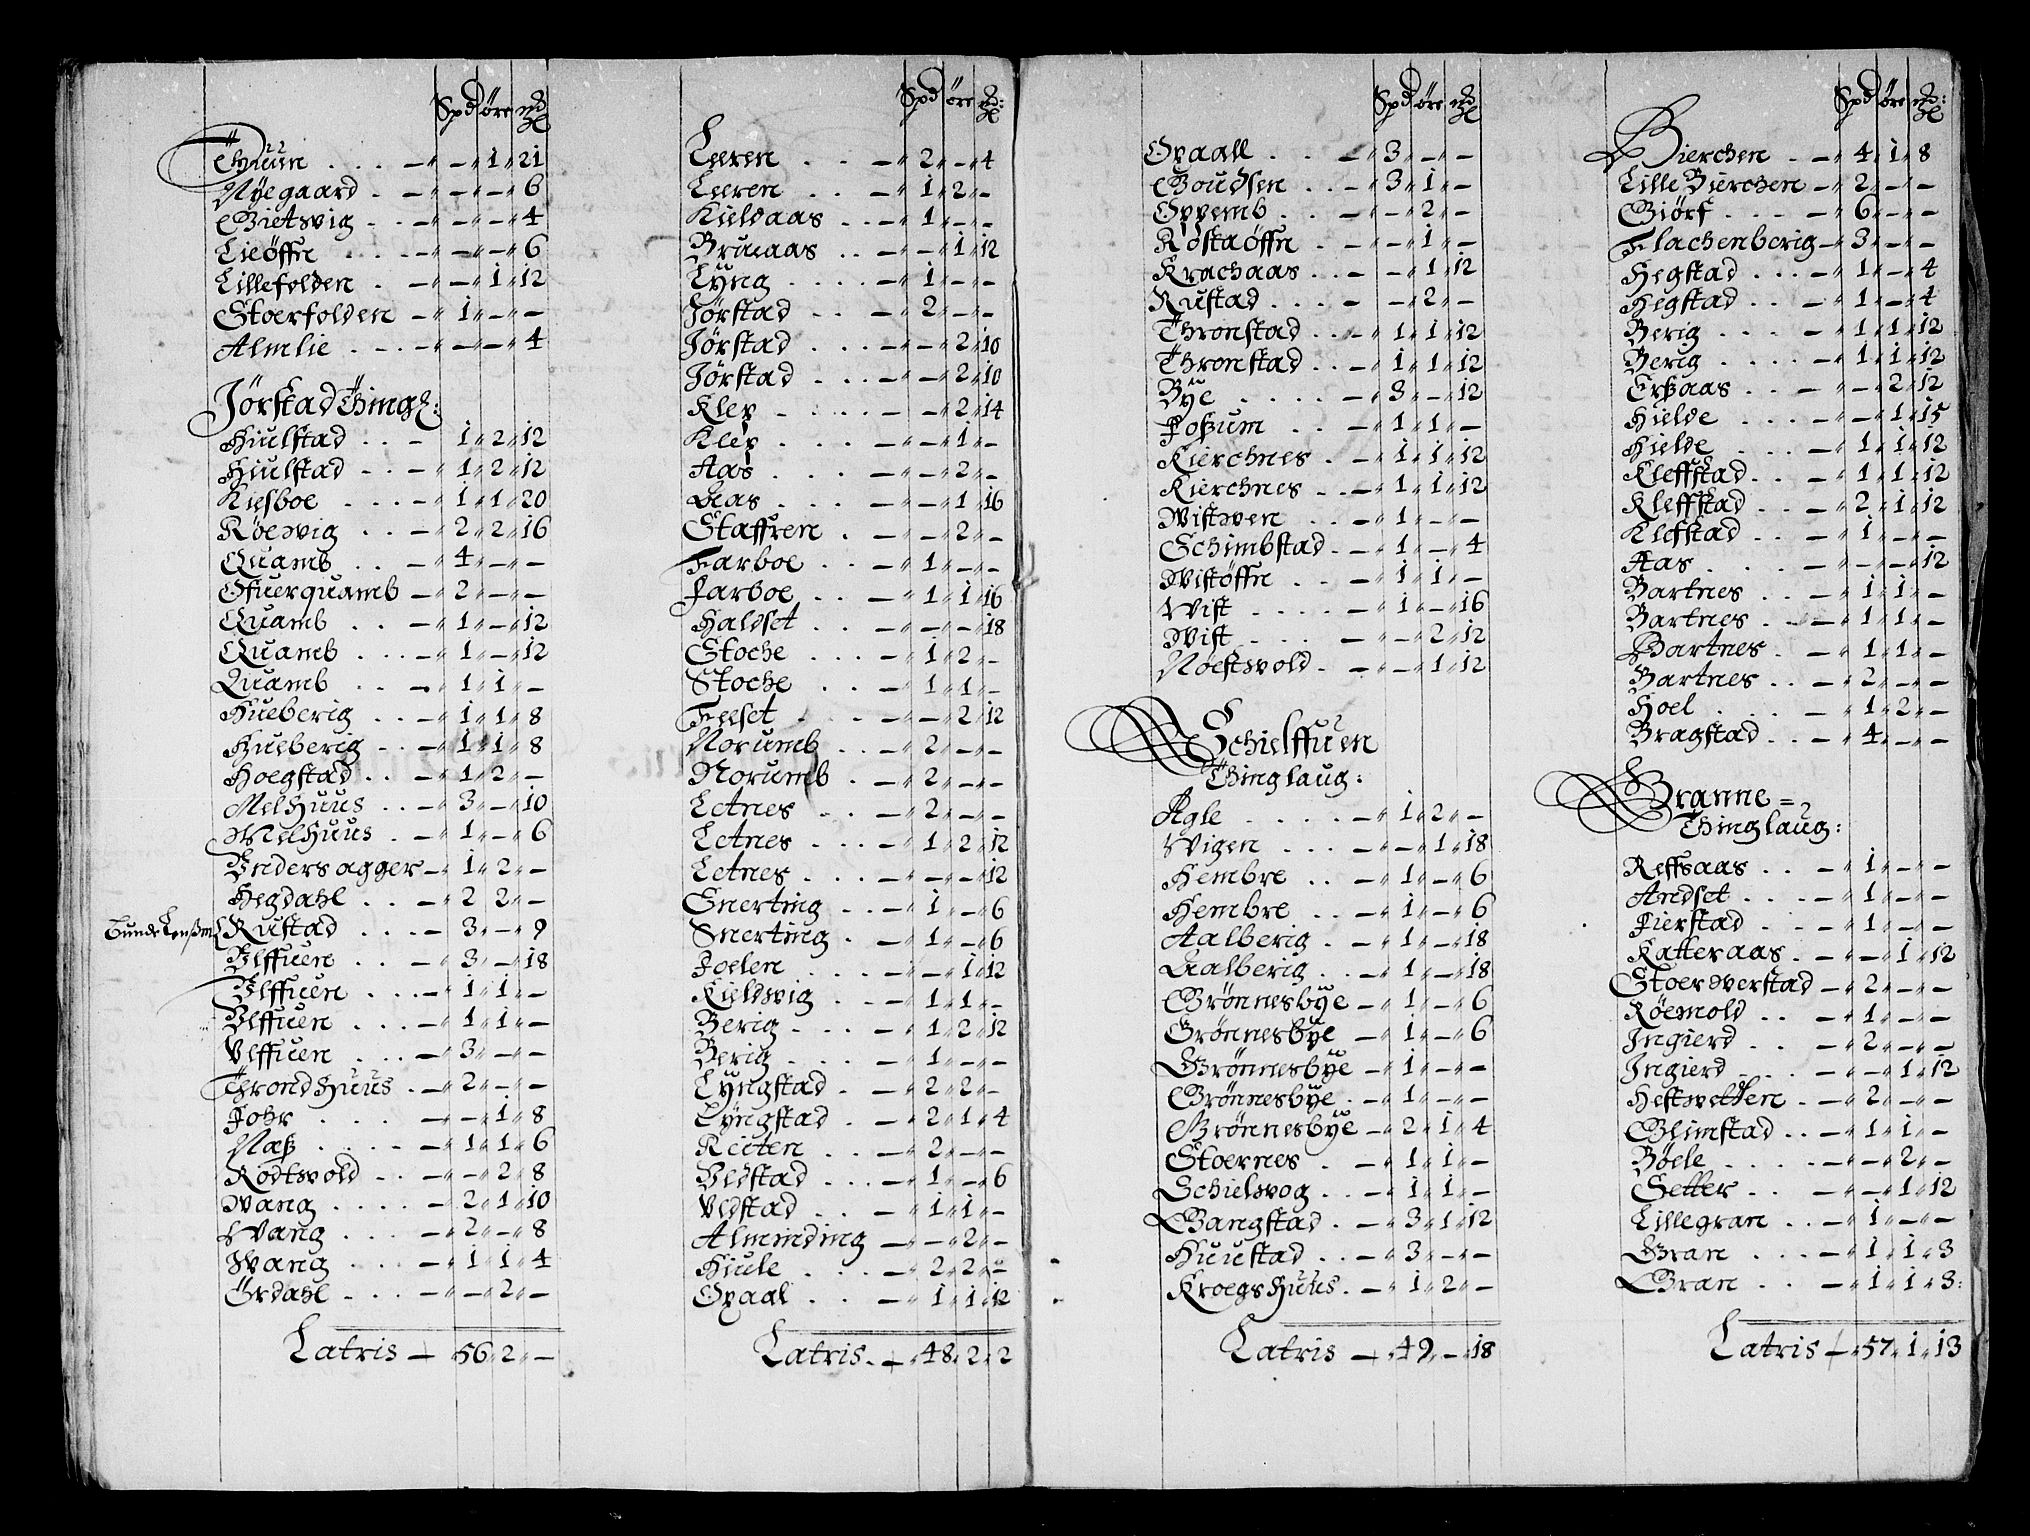 Spd øre
Thuun . . . — „ — „ 1 „ 21
Nyegaard . — „ — „ — „ 6
Gietsvig . . — „ — „ — „ 4
Lieøffn . . . — „ — „ — „ 6
Lillefolden . — „ — „ 1 „ 12
Stoerfolden — „ 1 „ — „ —
Almlie . . . — „ — „ — „ 4
Jørstad Thingl:
Hiulstad . . — 1 „ 2 „ 12
Hiulstad . . — „ 1 „ 2 „ 12
Kiesboe . . . — „ 1 „ 1 „ 20
Røesvig . . — „ 2 „ 2 „ 16
Quamb . . — „ 4 „ — „ —
Ofuerquamb — „ 2 „ — „ —
Quamb . . — „ 1 „ — „ 12
Quamb . . . — „ 1 „ — „ 12
Quamb . . — „ 1 „ 1 „ —
Hueberig . . — „ 1 „ 1 „ 8
Hueberig . . — „ 1 „ 1 „ 8
Hoegstad . . — „ 1 „ 2 „ —
Melhuus . . — „ 3 „ — „ 10
Melhuus . — „ 1 „ — „ 6
Vndersagger — „ 1 „ 2 „ —
Hegdahl . . — „ 2 2 „ —
Bunde Lensm Rustad . . . — „ 3 „ — „ 9
Vlffuen . . — „ 3 „ — „ 18
Vlffuen . . . — „ 1 „ 1 „ —
Vlffuen . . — „ 1 „ 1 „ —
Vlffuen . . . — „ 3 „ — „ —
Throndhuus . — „ 2 „ — „ —
Fohr . . . — „ — „ 1 „ 8
Naß . . . . — „ 1 „ 1 „ 6
Rodtsvold . . — „ — „ 2 „ 8
Wang . . . . — „ 2 „ 1 „ 10
Wang . . . — „ 2 „ — „ 8
Wang . . . — „ 1 „ 1 „ 4
Ørdahl . . . — „ — „ 2 „ —
Latris — 56 „ 2 „ —
Spd øre
Leeren . . . — „ 2 „ — „ 4
Leeren . . — „ 1 „ 2 „ —
Kieldaas . . . — „ 1 „ — „ —
Bruaas . . — „ — „ 1 „ 12
Lÿng . . . . — „ 1 „ — „ —
Jørstad . . . — „ 2 „ — „ —
Jørstad . . . — „ — „ 2 „ 10
Jørstad . . . — „ — „ 2 „ 10
Klep . . . . — „ — „ 2 „ 14
Klep . . . — „ — „ 1 „ —
Aas . . . — „ — „ 2 „ —
Aas . . . — „ — „ 1 „ 16
Staffren . — „ — „ 2 „ —
Farboe . . — „ 1 „ — „ —
Farboe . . — „ 1 „ 1 „ 16
Haldset . . — „ — „ — „ 18
Stoche . . . — „ 1 „ 2 „ —
Stoche . . — „ 1 „ 1 „ —
Feeset . . . — „ — „ 2 „ 12
Norumb . . — „ 2 „ — „ —
Norumb . — „ 2 „ — „ —
Letnes . . — „ 2 „ — „ —
Letnes . . — „ 1 „ 2 „ 12
Letnes . . . — „ — „ — „ 12
Snerting . . — „ 1 „ — „ 6
Snerting . — „ 1 „ — „ 6
Foelen . . . . — „ — „ 1 „ 12
Kieldsvig . . — „ 1 „ 1 „ —
Berig . . . — „ 1 „ 2 „ 12
Berig . . . — „ 1 „ — „ —
Lÿngstad . — „ 2 „ 2 „ —
Lÿngstad . — „ 2 „ 1 „ 4
Reiten . . — „ 2 „ — „ —
Vldstad . . . — „ 1 „ — „ 6
Vldstad . . — „ 1 „ 1 „ —
Alminding — „ — „ 2 „ —
Hiule . . . — „ 2 „ 2 „ —
Opaal . . — „ 1 „ 1 „ 12
Latris . — „ 48 „ 2 „ 2
Spd øre
Opaall . . . — „ 3 „ — „ —
Goudsen . . — „ 3 „ 1 „ —
Oppemb . . — „ — „ 2 „ —
Røstaøffn . — „ — „ 1 „ —
Krachaas . . — „ — „ 1 „ 12
Rustad . . . — „ — „ 2 „ —
Thronstad . . — „ 1 „ 1 „ 12
Thronstad . . — „ 1 „ 1 „ 12
Bÿe . . . . — „ 3 „ — „ 12
Foßum . . — „ 1 „ 1 „ —
Kierchnes . — „ 1 „ 1 „ 12
Kierchnes . . — „ 1 „ 1 „ 12
Wistwen . . — „ 1 „ — „ —
Schimbstad . — „ 1 „ — „ 4
Wistøffn . . — „ 1 „ 1 „ —
Wist . . . . — „ 1 „ — „ 16
Wist . . . — „ — „ 2 „ 12
Nøestwold . — „ — „ 1 „ 12
Schielffuen
Thinglaug:
Agle . . . . — „ 1 „ 2 „ —
Wigen . . . — „ — „ 1 „ 18
Hembre . . — „ 1 „ — „ 6
Hembre . . — „ 1 „ — „ 6
Aalberig . — „ 1 „ — „ 18
Aalberig . . — „ 1 „ — „ 18
Grønnesbÿe — „ 1 „ — „ 6
Grønnesbÿe — „ 1 „ — „ 6
Grønnesbÿe — „ 1 „ — „ —
Grønnesbÿe . — „ 1 „ — „ —
Grønnesbÿe — „ 2 „ 1 „ 4
Stoernes . — „ 1 „ 1 „ —
Schielsvog . . — „ 1 „ 1 „ —
Bangstad . . — „ 3 „ 1 „ 12
Huustad . . — „ 3 „ — „ —
Kroegshuus . — „ 1 „ 2 „ —
Latris — „ 49 „ — „ 18
Spd øre
Bierchen . — „ 4 „ 1 „ 8
Lille Bierchen — „ 2 „ — „ —
Giørf . . . . — „ 6 „ — „ —
Flachenberig — „ 3 „ — „ —
Hegstad . . . — „ 1 „ — „ 4
Hegstad . . . — „ 1 „ — „ 4
Berig . . . . — „ 1 „ 1 „ 12
Berig . . . . — „ 1 „ 1 „ 12
Erßaas . . . — „ — „ 2 „ 12
Hielde . . . . — „ — „ 1 „ 15
Hielde . . . — „ 1 „ 1 „ 12
Kleffstad . . — „ 1 „ 1 „ 12
Kleffstad . . — „ 2 „ 1 „ 12
Klefstad . . — „ 1 „ — „ —
Aas . . . . — „ — „ — „ 12
Bartnes . . — „ 1 „ 1 „ —
Bartnes . . — „ 1 „ 1 „ —
Bartnes . — „ 1 „ 1 „ —
Bartnes . . — „ 2 „ — „ —
Hoel . . . — „ 1 „ 2 „ —
Bragstad . . — „ 4 „ — „ —
Granne =
Thinglaug:
Reffsaas . . — „ 1 „ — „ —
Andset . . . — „ 1 „ — „ —
Fierstad . . — „ 1 „ — „ —
Katteraas . — „ — „ 1 „ 12
Stoerdverstad — „ 2 „ — „ —
Røemold . . — „ 1 „ — „ —
Ingierd . . — „ 2 „ — „ —
Ingierd . . . — „ — „ 1 „ 12
Hestvetten . — „ 2 „ — „ —
Glimstad . . — „ 1 „ 1 „ —
Bøele . . . . — „ — „ 2 „ —
Setter . . — „ — „ 1 „ 12
Lillegran . . — „ 1 „ — „ —
Gran . . . — „ 1 „ 1 „ 3
Gran . . — „ 1 „ 1 „ 3:
Latris — „ 57 „ 1 „ 13